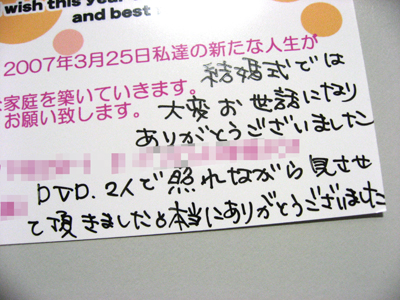 wish this year
and best
2007年3月25日私達の新たな人生が
家庭を築いていきます。
お願い致します。
結婚式では
大変お世話になり
ありがとうございました
DVD. 2人で照れながら見させ
て頂きましたよ本当にありがとうございました